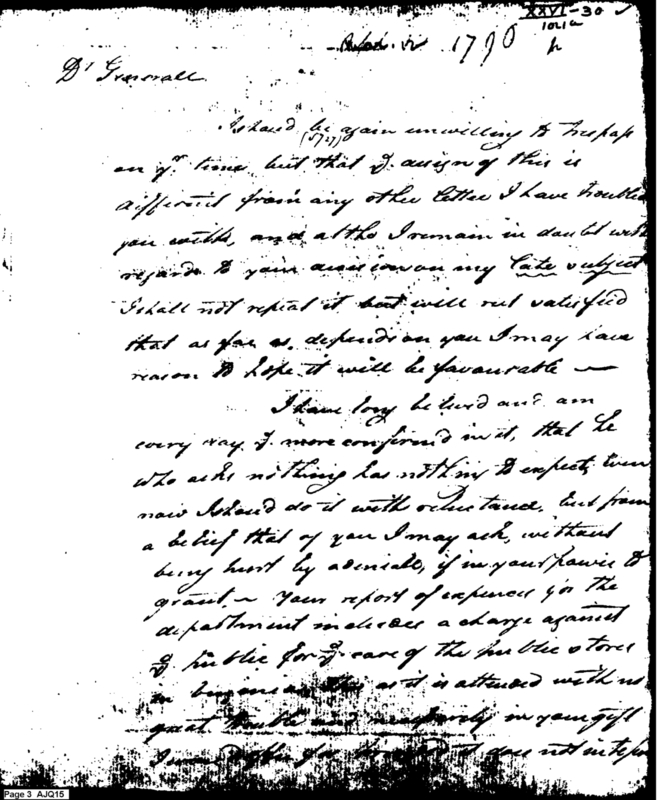 XXVI-30
101a
h
1790
Dr Generall
I shoud be again unwilling to trespass
on yr. time but that ye design of this is
different from any other letter I have troubled
you with, and altho I remain in doubt with
regard to your decision on my late subject
I shall not repeat it but will rest satisfied
that as far as depends on you I may have
reason to hope it will be favourable —
I have long believd and am
every day ye more confirm'd in it, that he
who asks nothing has nothing to expect, Even
now I shoud do it with reluctance, but from
a belief that of you I may ask, without
being hurt by a denial, if in your power to
grant. ~ Your report of expences for the
department includes a charge against
ye public for ye care of the public stores
in as it is attended with no
great trouble and in your gift
I does not
Page 3 AJQ15